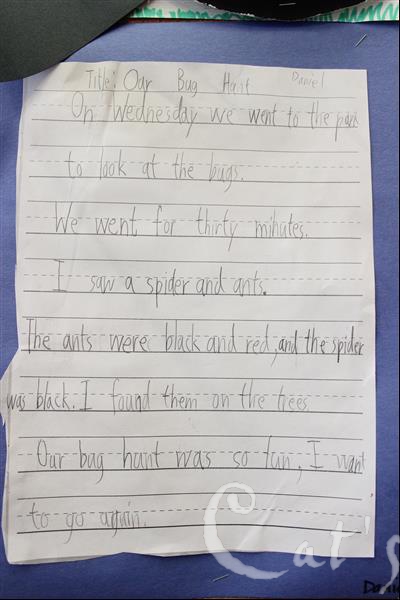 Title: Our Bug Hunt Daniel
On Wednesday we went to the park
to look at the bugs.
We went for thirty minutes.
I saw a spider and ants.
The ants were black and red, and the spider
was black. I found them on the trees.
Our bug hunt was so fun, I want
to go again.
Cat's